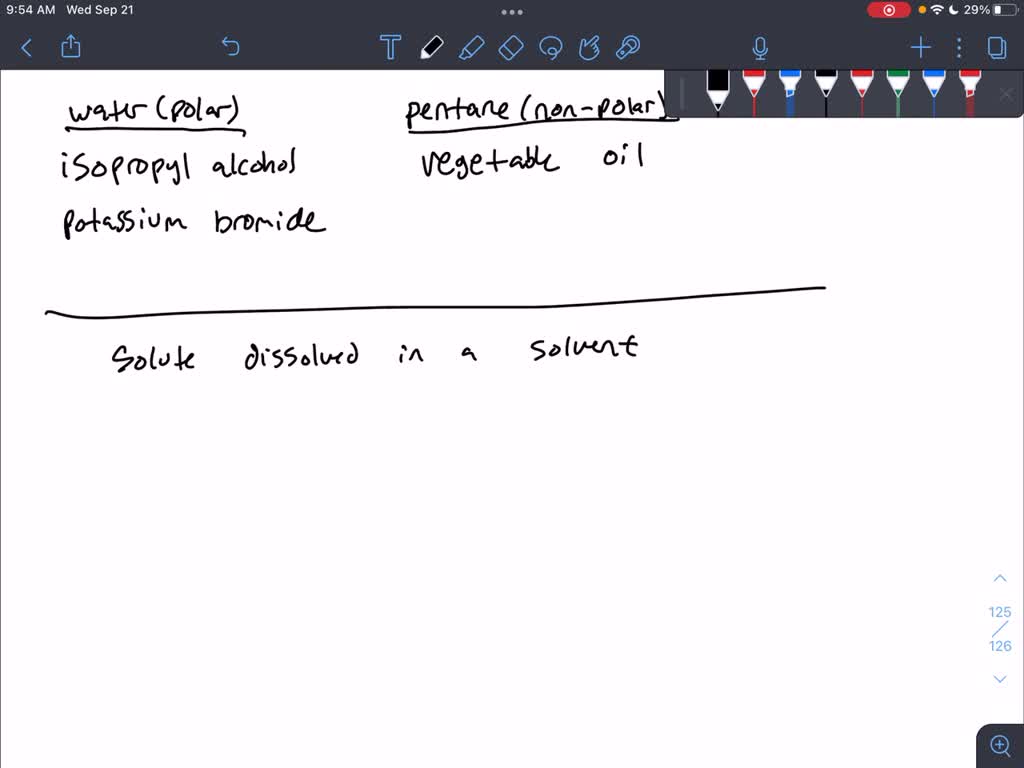 9:54 AM Wed Sep 21
29%
T
water (polar) pentane (non-polar)
isopropyl alcohol vegetable oil
potassium bromide
Solute dissolved in a solvent
125
126